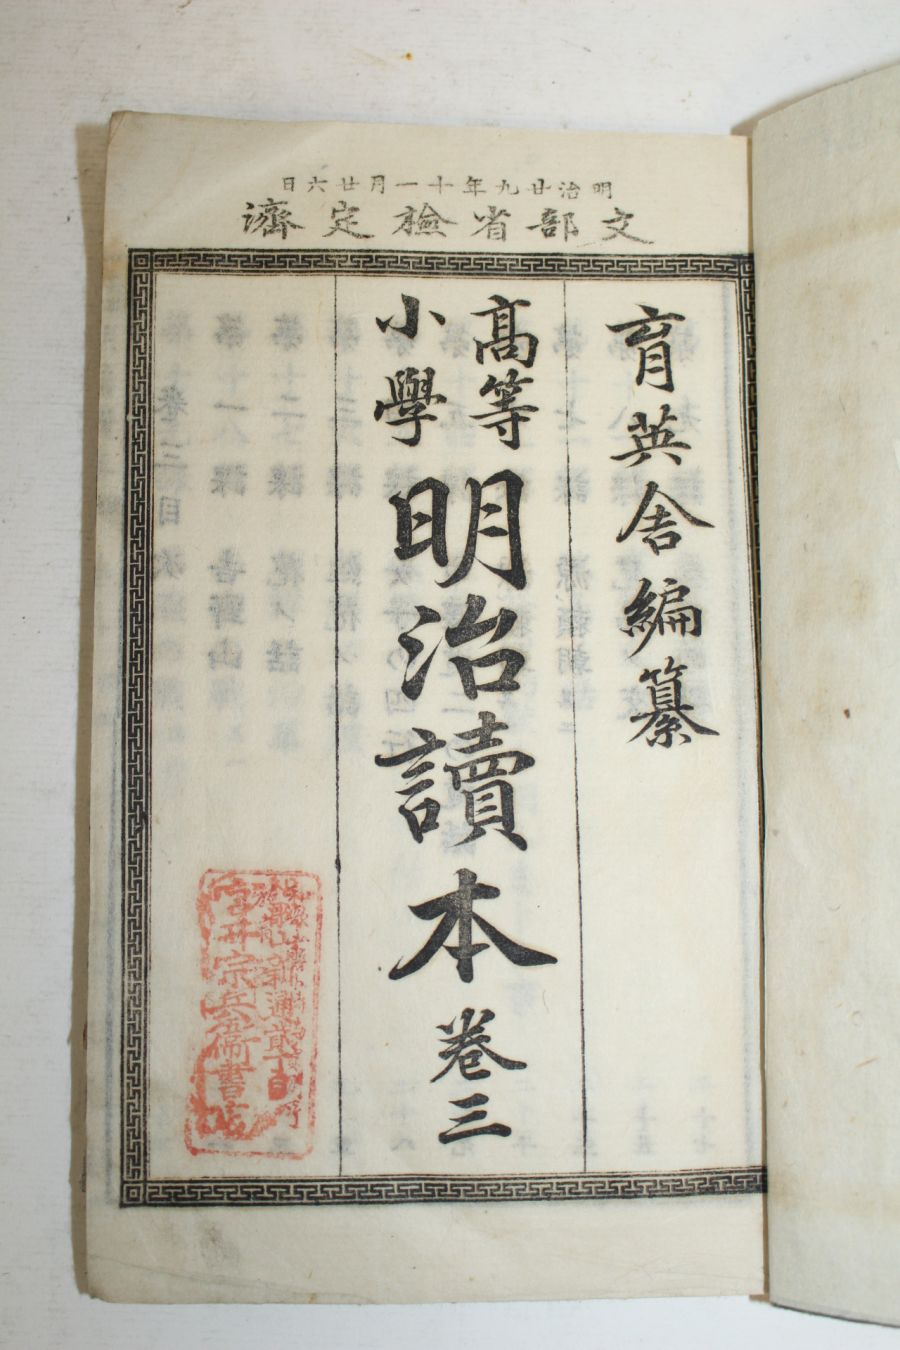 明治廿九年十一月廿六日
文部省檢定濟
育英舍編纂
高等
小學
明治讀本卷三
宮井宗兵衞書店